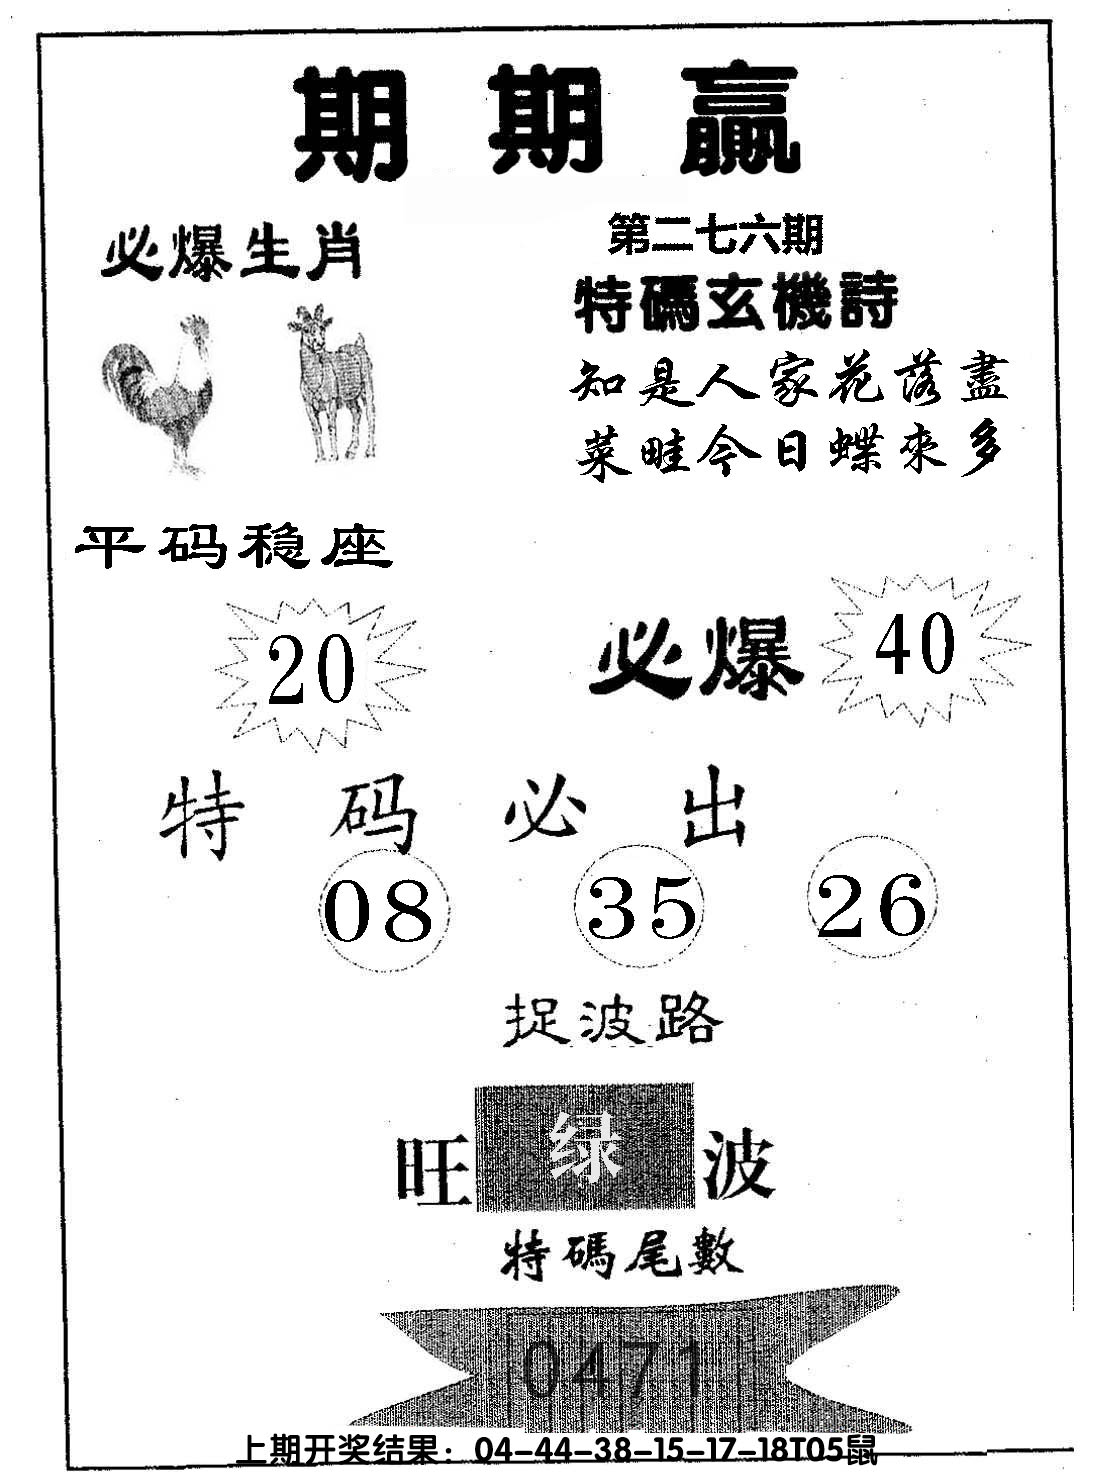 期期赢
必爆生肖
第二七六期
特碼玄機詩
知是人家花落盡
菜畦今日蝶來多
平码稳座
20
必爆 40
特码必出
08 35 26
捉波路
旺 绿 波
特碼尾數
0471
上期开奖结果：04-44-38-15-17-18T05鼠